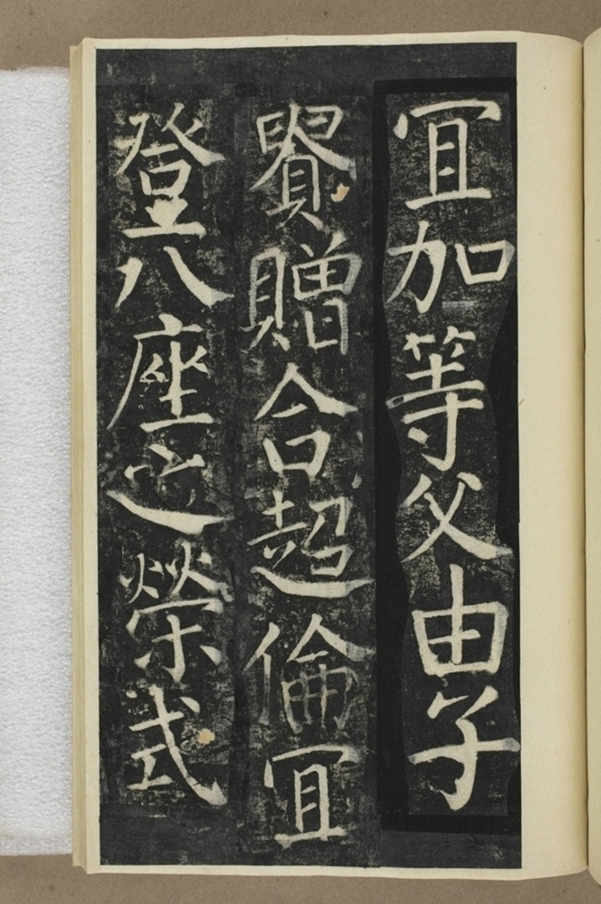 冝加等父由子
貴贈合超倫冝
登八座之榮式